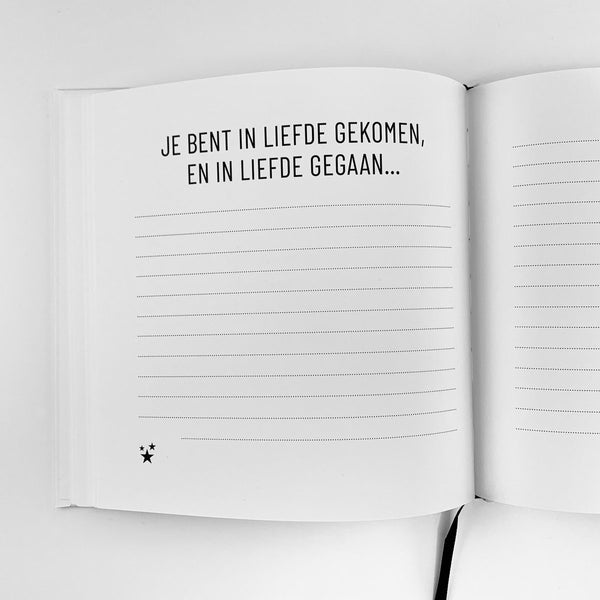 JE BENT IN LIEFDE GEKOMEN,
EN IN LIEFDE GEGAAN...